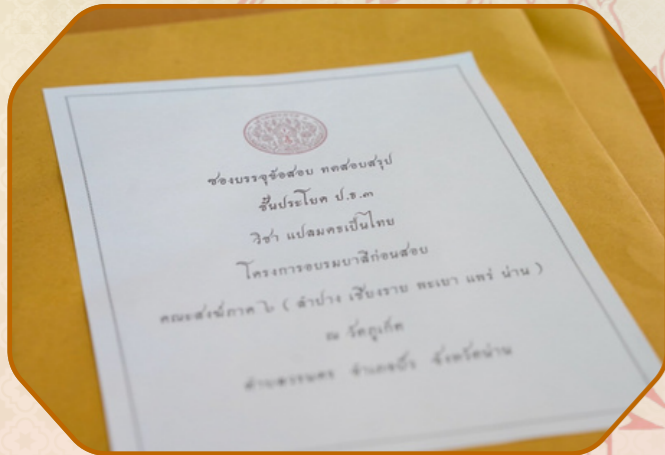 ซองบรรจุข้อสอบ ทดสอบสรุป
ชั้นประโยค ป.ธ.๓
วิชา แปลมคธเป็นไทย
โครงการอบรมบาลีก่อนสอบ
คณะสงฆ์ภาค ๖ ( ลำปาง เชียงราย พะเยา แพร่ น่าน )
ณ วัดภูเก็ต
ตำบลวรนคร อำเภอปัว จังหวัดน่าน